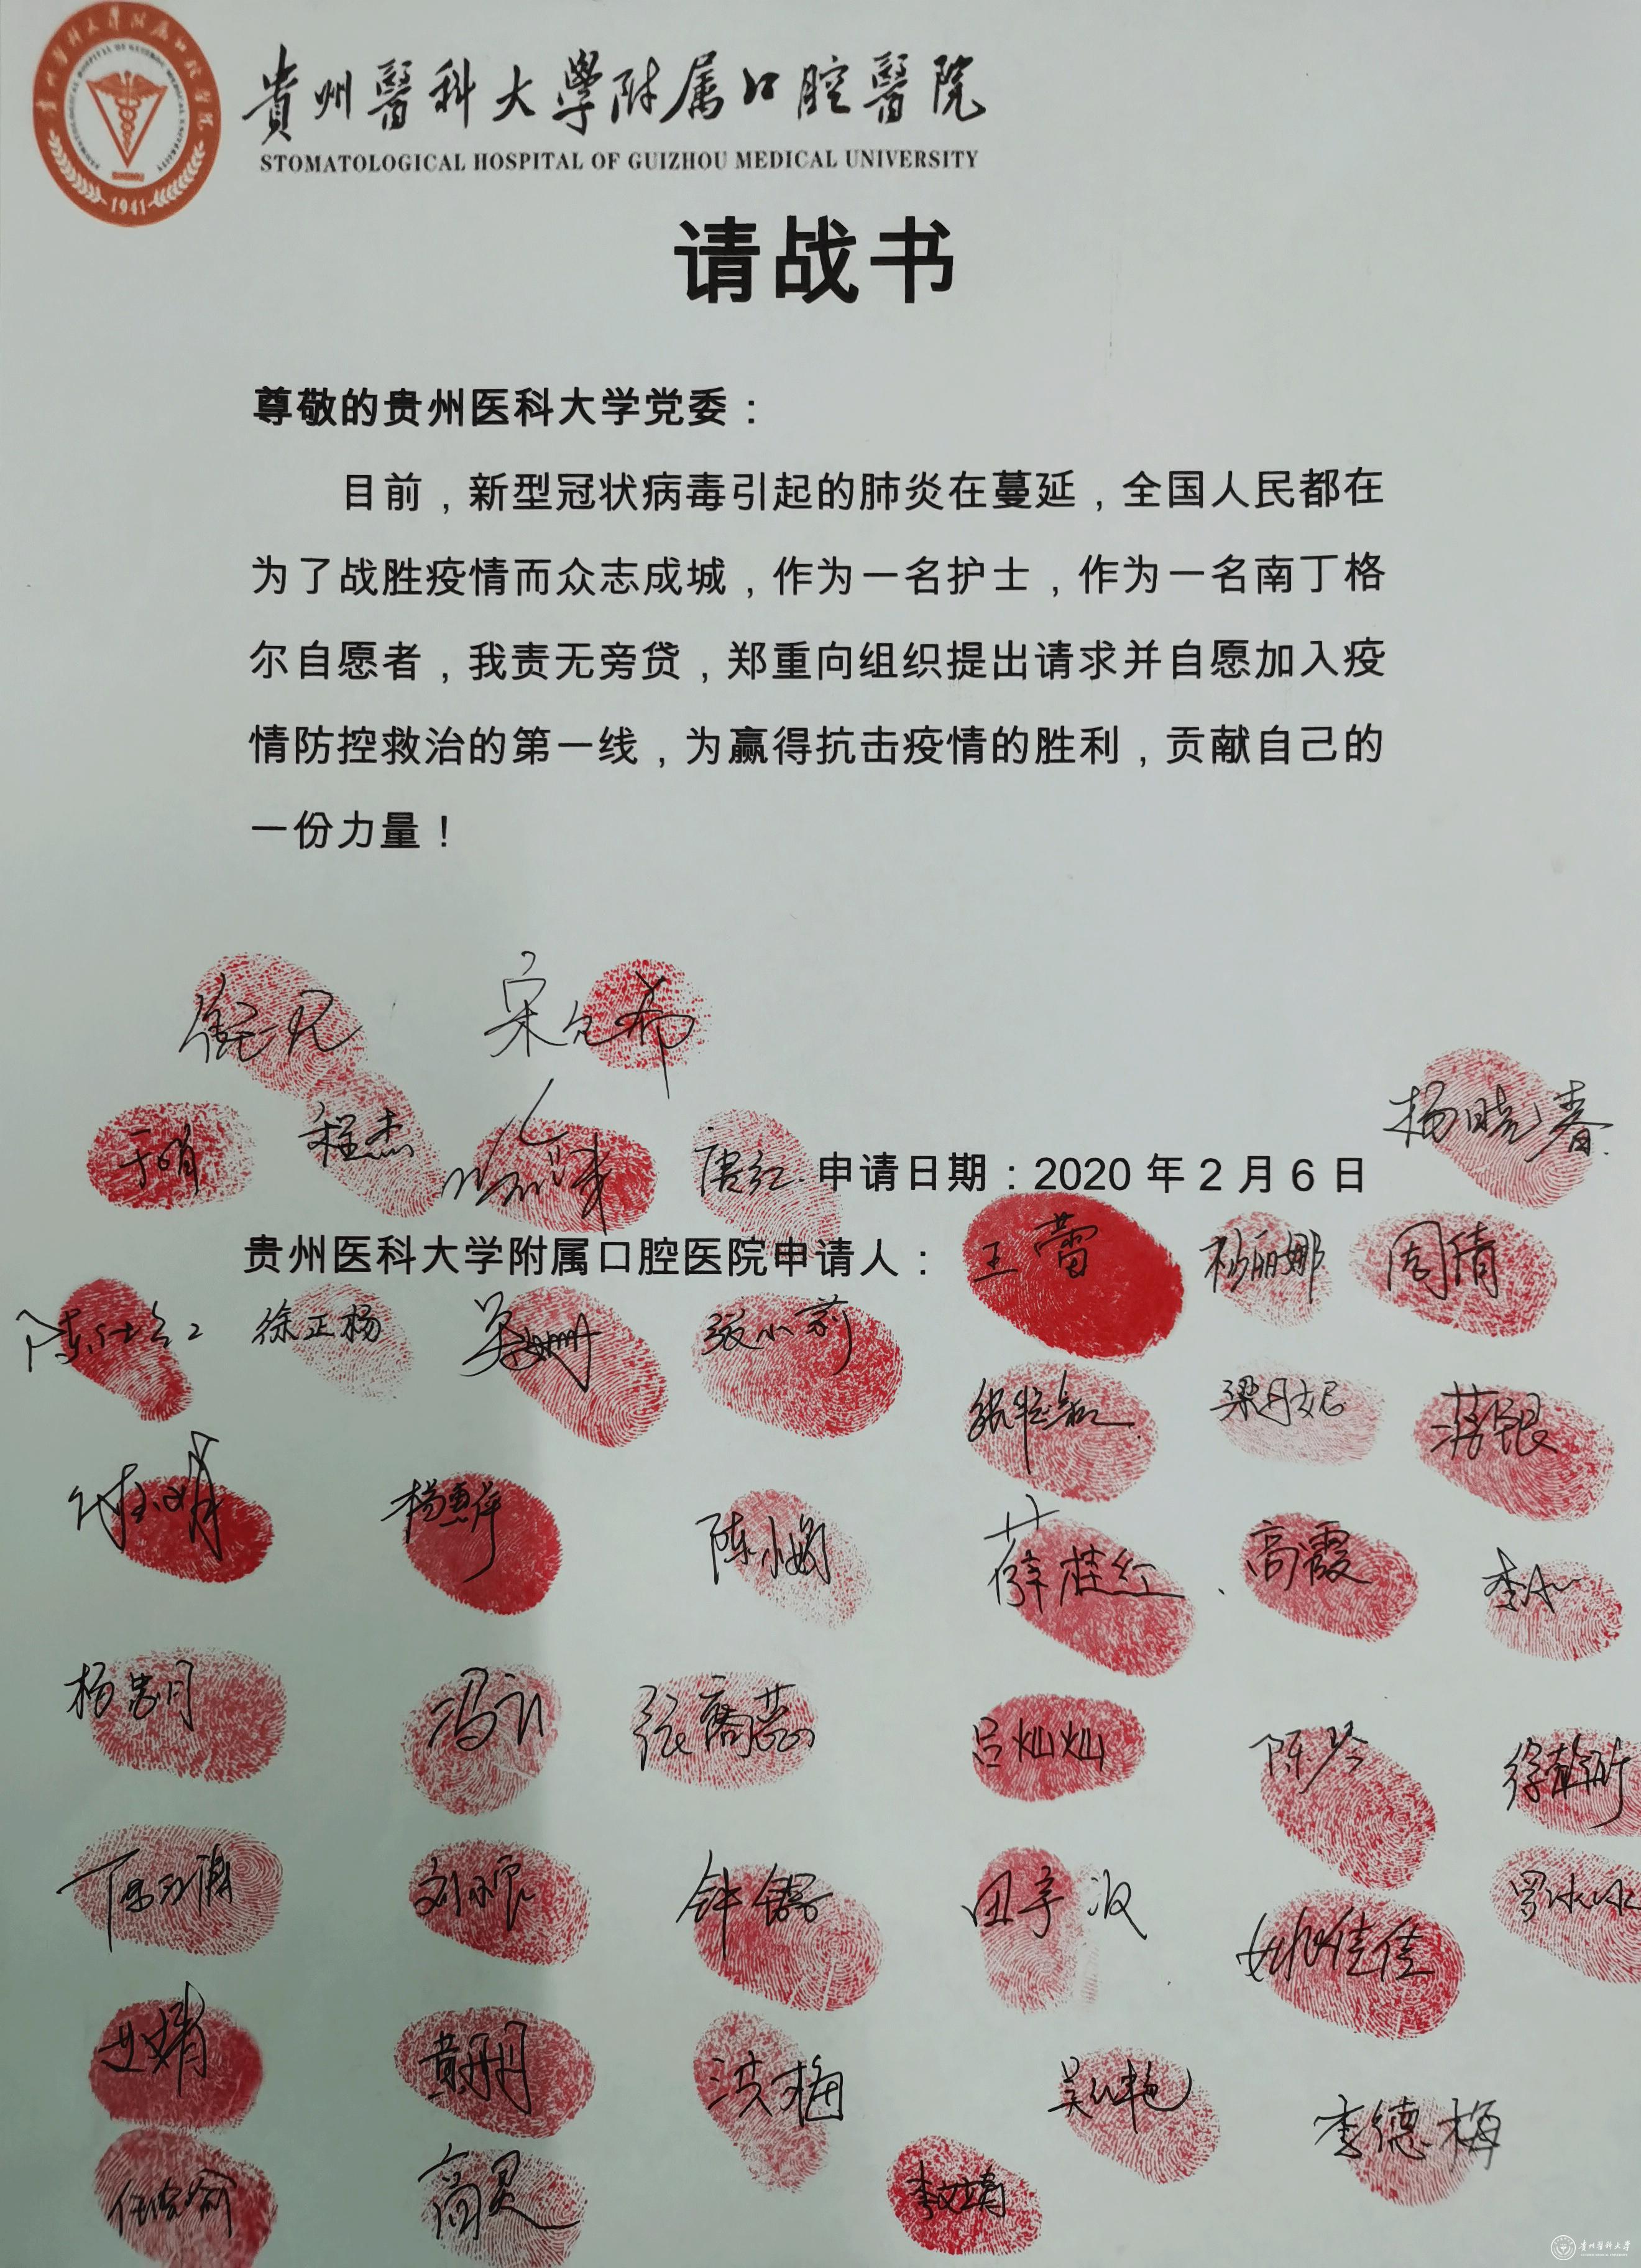 貴州醫科大學附属口腔醫院
STOMATOLOGICAL HOSPITAL OF GUIZHOU MEDICAL UNIVERSITY
1941
请战书
尊敬的贵州医科大学党委：
目前，新型冠状病毒引起的肺炎在蔓延，全国人民都在
为了战胜疫情而众志成城，作为一名护士，作为一名南丁格
尔自愿者，我责无旁贷，郑重向组织提出请求并自愿加入疫
情防控救治的第一线，为赢得抗击疫情的胜利，贡献自己的
一份力量！
杨晓春
程杰 唐红 申请日期：2020 年 2 月 6 日
贵州医科大学附属口腔医院申请人： 王蕾 杨丽娜 周倩
徐正杨 张小莉
梁丹妮 蒋银
杨惠萍 陈小娟 薛桂红 高霞
张裔蕊 吕灿灿 陈琴
田宇 姚佳佳 罗冰冰
黄丹丹 洪梅 吴艳 李德梅
高灵 李文靖
貴州醫科大學